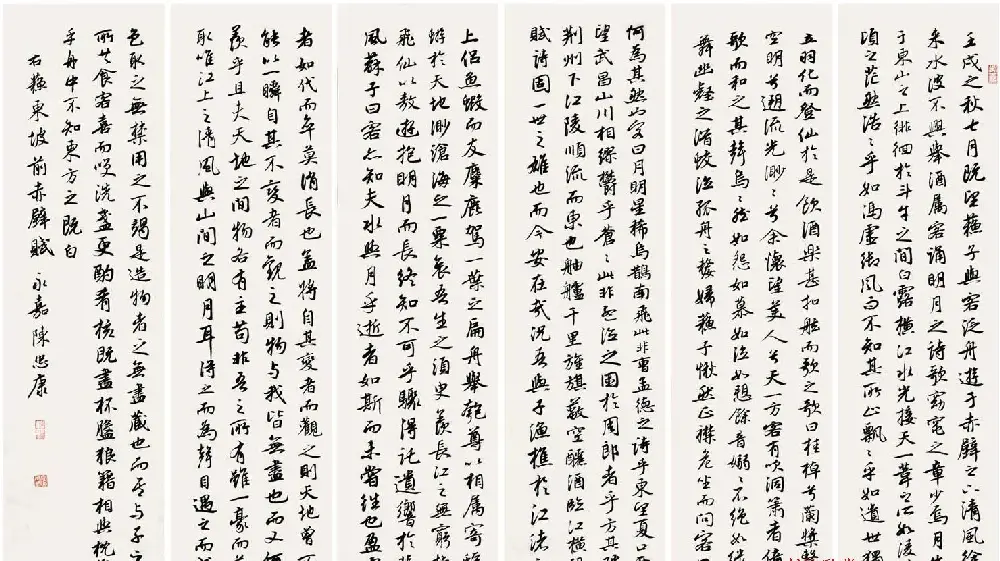 壬戌之秋七月既望蘇子與客泛舟遊于赤壁之下清風徐
來水波不興舉酒属客誦明月之詩歌窈窕之章少焉月出
于東山之上徘徊於斗牛之間白露橫江水光接天一葦之所如淩
頃之茫然浩浩乎如馮虛御風而不知其所止飄飄乎如遺世獨
立羽化而登仙於是飲酒樂甚扣舷而歌之歌曰桂棹兮蘭槳擊
空明兮遡流光渺渺兮余懷望美人兮天一方客有吹洞簫者倚
歌而和之其聲烏烏然如怨如慕如泣如訴餘音嫋嫋不絕如縷
舞幽壑之潛蛟泣孤舟之嫠婦蘇子愀然正襟危坐而問客
何為其然也客曰月明星稀烏鵲南飛此非曹孟德之詩乎東望夏口西
望武昌山川相繆鬱乎蒼蒼此非孟德之困於周郎者乎方其破
荊州下江陵順流而東也舳艫千里旌旗蔽空釃酒臨江橫
賦詩固一世之雄也而今安在哉況吾與子漁樵於江渚
上侶魚蝦而友麋鹿駕一葉之扁舟舉匏尊以相属寄蜉
蝣於天地渺滄海之一粟哀吾生之須臾羨長江之無窮挾
飛仙以遨遊抱明月而長終知不可乎驟得託遺響於悲
風蘇子曰客亦知夫水與月乎逝者如斯而未嘗往也盈
者如代而卒莫消長也蓋將自其變者而觀之則天地曾不
能以一瞬自其不變者而觀之則物與我皆無盡也而又何
羨乎且夫天地之間物各有主苟非吾之所有雖一豪而莫
取唯江上之清風與山間之明月耳得之而為聲目遇之而
色取之無禁用之不竭是造物者之無盡藏也而吾与子之
所共食客喜而笑洗盞更酌肴核既盡杯盤狼籍相與枕
乎舟中不知東方之既白
右蘇東坡前赤壁賦 永嘉陳忠康